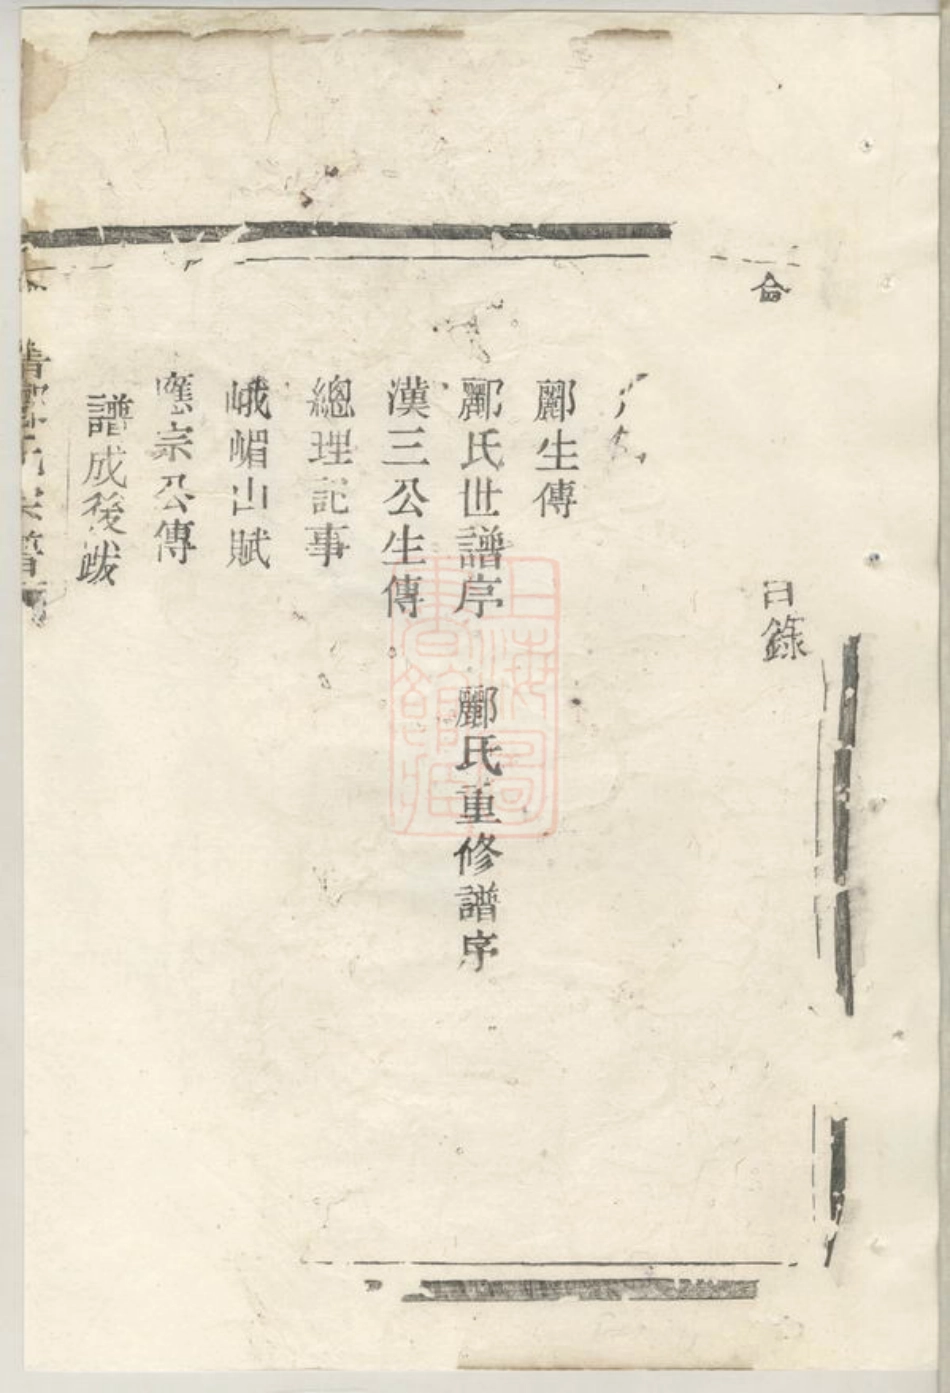 合
目錄
酈生傳
酈氏世譜序 酈氏重修譜序
漢三公生傳
總理記事
峨嵋山賦
應宗公傳
譜成後跋
上海圖書館藏